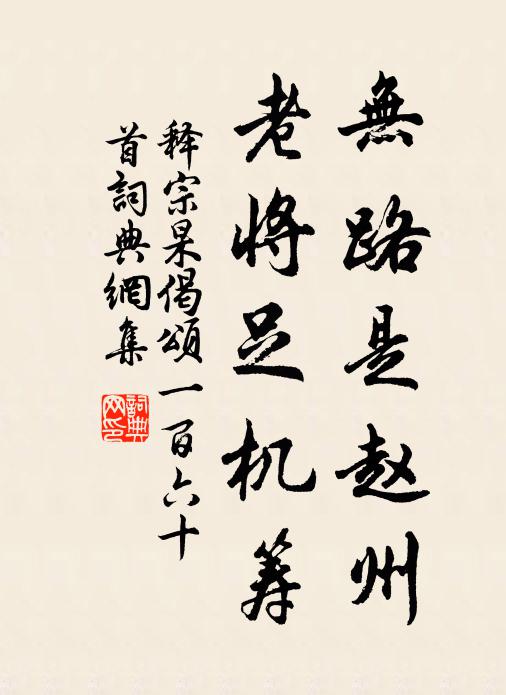 無路是赵州
老将足机筹
释宗杲偈頌一百六十
首詞典網集
詞典
网印